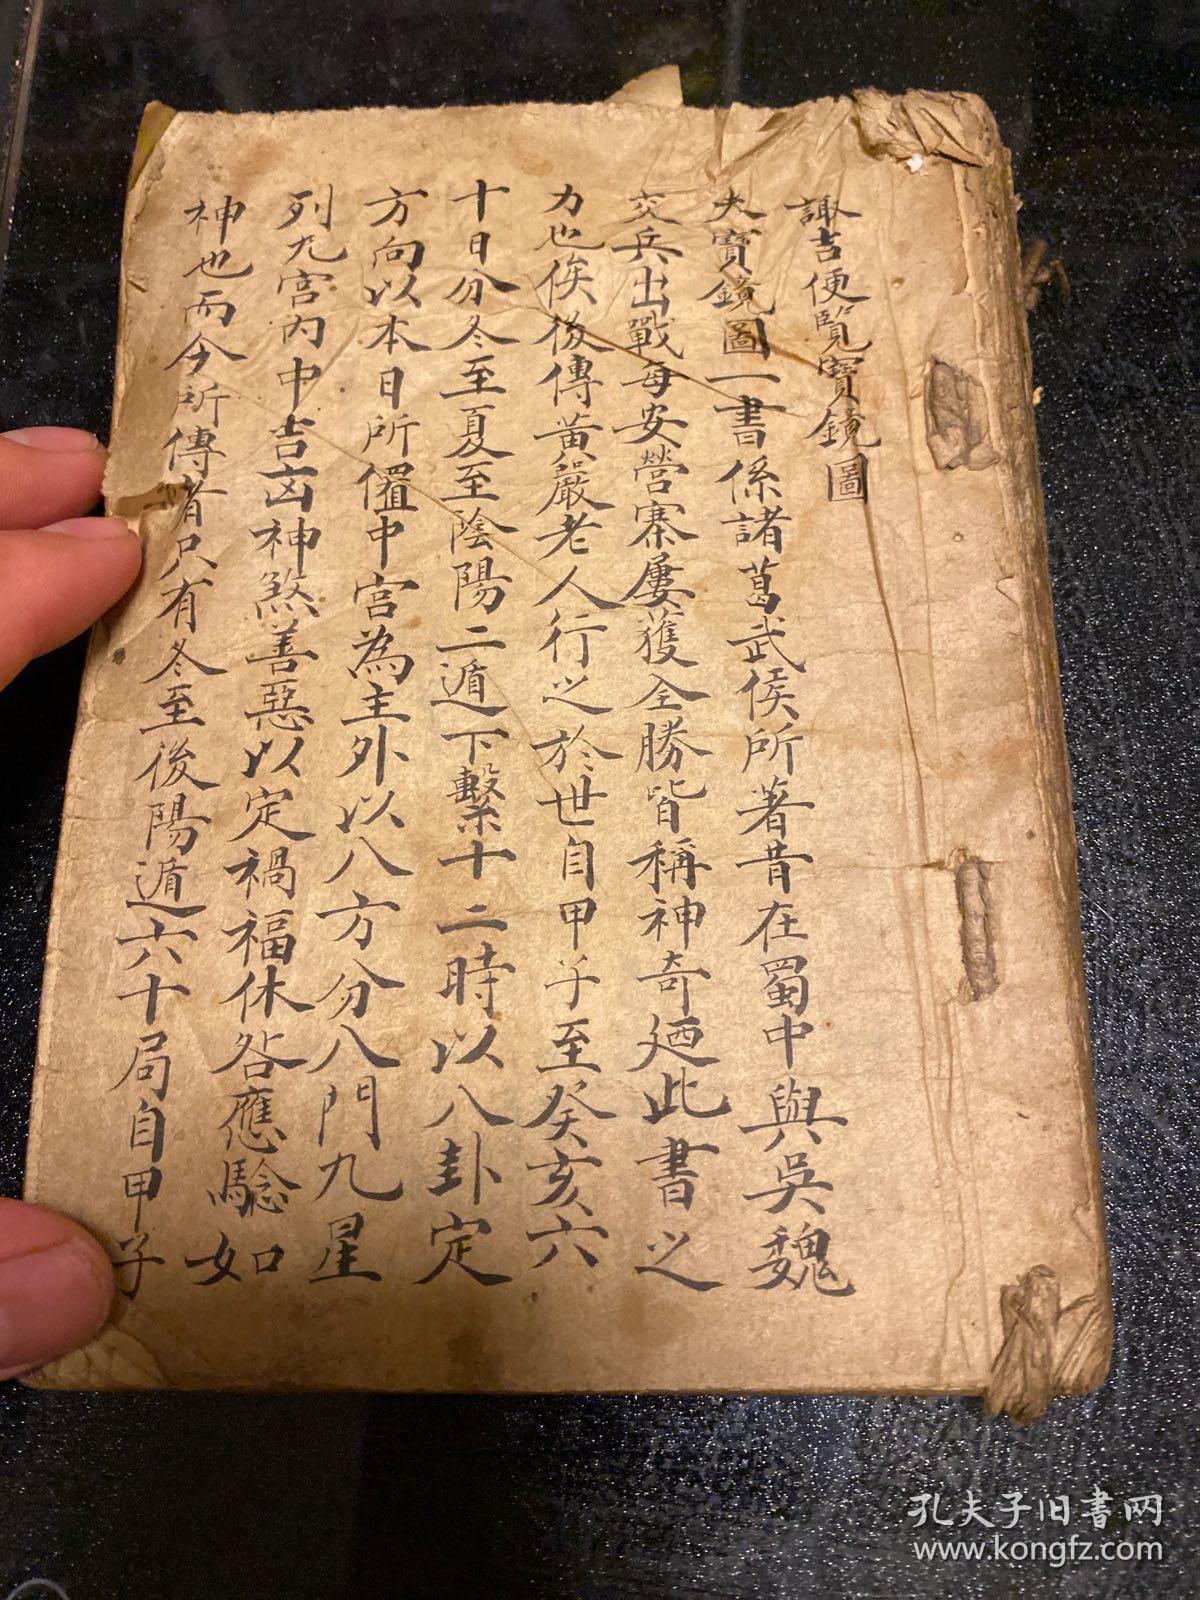 諏吉便覽寶鏡圖
夫寶鏡圖一書係諸葛武侯所著昔在蜀中與吳魏
交兵出戰每安營寨屢獲全勝皆稱神奇廼此書之
力也俟後傳黃嚴老人行之於世自甲子至癸亥六
十日分冬至夏至陰陽二遁下繫十二時以八卦定
方向以本日所値中宮為主外以八方分八門九星
列九宮內中吉凶神煞善惡以定禍福休咎應驗如
神也而今所傳者只有冬至後陽遁六十局自甲子
孔夫子旧书网
www.kongfz.com